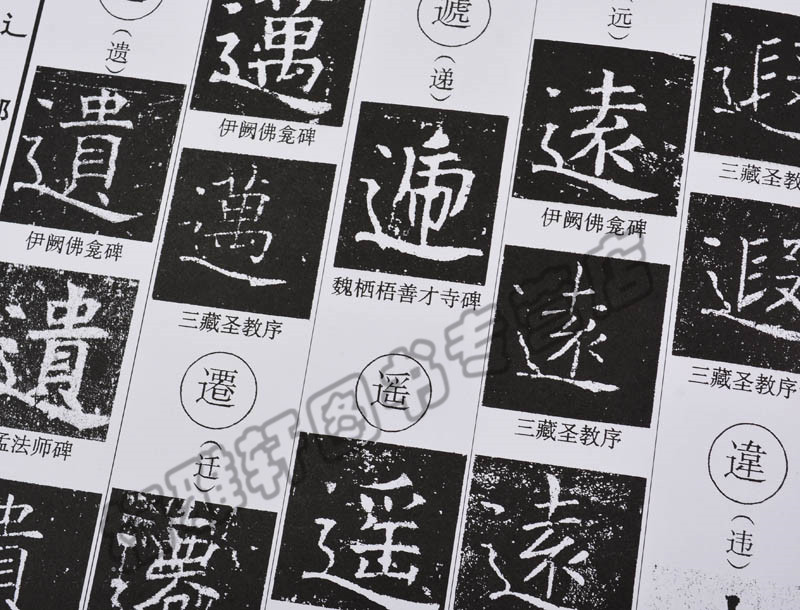 之
(遗)
遺
伊阙佛龛碑
遺
孟法师碑
遺
邁
伊阙佛龛碑
邁
三藏圣教序
遷
(迁)
遷
遞
(递)
遞
魏栖梧善才寺碑
遥
遥
(远)
遠
伊阙佛龛碑
遠
三藏圣教序
遠
遐
三藏圣教序
遐
三藏圣教序
違
(违)
雅轩图书专营店